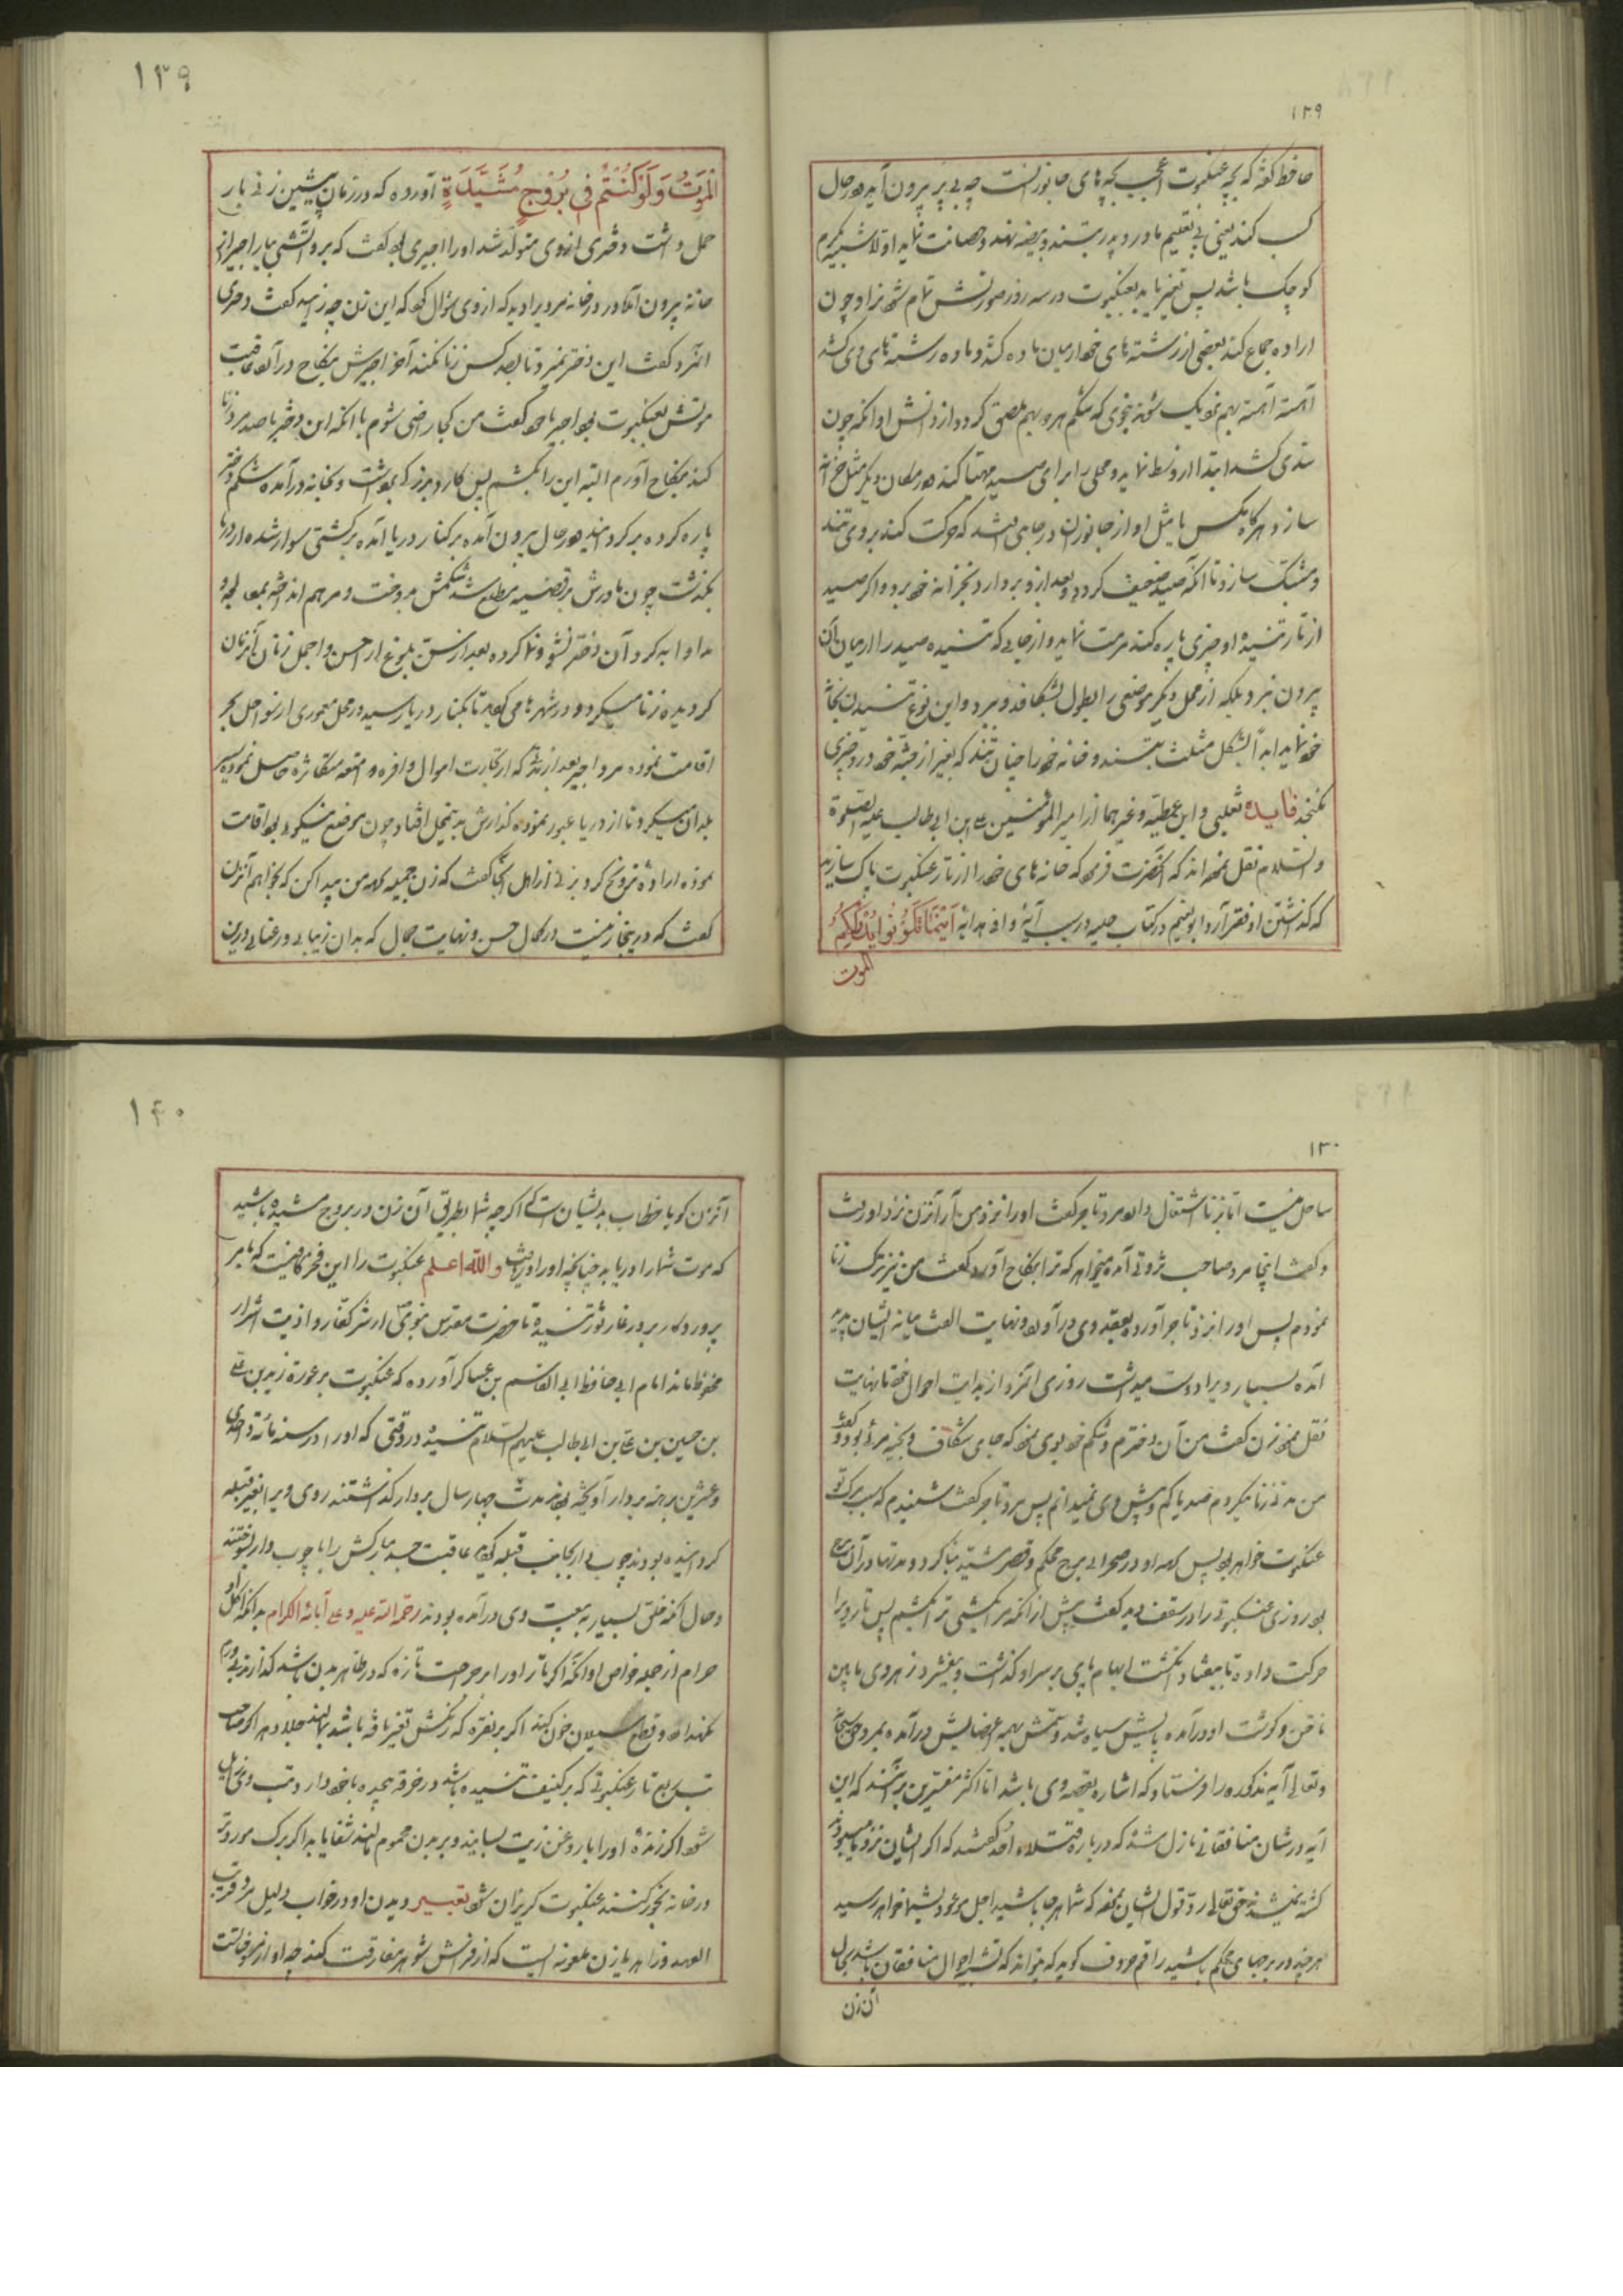 ۱۲۹
حافظ گفته که بچه عنکبوت اعجب بچه‌های جانورانست چه بی پر بیرون آید و در حال
کسب کند یعنی بی تعلیم مادر و پدر بتند و بیضه نهد و حضانت نماید اولا شبیه بکرم
کوچک باشد پس تغیر یابد بعنکبوت در سه روز صورتش تمام شود و چون
اراده جماع کند بعضی از رشته‌های خود از میان ماده کشد و ماده رشته‌های وی کشد
آهسته آهسته بهم نزدیک شوند بنحوی که شکم هر دو بهم ملصق گردد و از دانش او آنکه چون
تندی کشد ابتدا از وسط نماید و محلی را برای صید مهیا کند در مکان دیگر مثل خزانه
سازد هرگاه مگس یا مثل او از جانوران در جایی افتد که حرکت کند بروی تند
و مشبک سازد تا آنکه صید ضعیف گردد و بعد ازو بردارد و بخزانه خود برد و اگر صید
از تار تنیده او چیزی پاره کند مرمت نماید و از جایی که تنیده صید را از میان آن
بیرون نبرد بلکه از محل دیگر موضعی را بطول بشکافد و ببرد و این نوع تنیدن بخانه
خود نماید ابداً بشکل مثلث بتند و خانه خود را چنان تند که بغیر از جثه خود درو چیزی
نگنجد فایده ثعلبی و ابن عطیه و غیرهما از امیر المؤمنین علی ابن ابی طالب علیه الصلوة
والسلام نقل نموده اند که آنحضرت فرمود که خانه های خود را از تار عنکبوت پاک سازید
که گذاشتن او فقر آرد ابو نعیم در کتاب حلیه در سبب آیه وافی هدایه أَيْنَمَا تَكُونُوا يُدْرِكْكُمُ
الموت
۱۳۹
الْمَوْتُ وَلَوْ كُنْتُمْ فِي بُرُوجٍ مُشَيَّدَةٍ آورده که در زمان پیشین زنی بار
حمل داشت دختری از وی متولد شد او را اجیری بود گفت که برو آتشی بیار اجیر از
خانه بیرون آمد و در در خانه مردی را دید که از وی سؤال کرد که این زن چه زایید گفت دختری
آنمرد گفت این دختر نمیرد تا بصد کس زنا نکند آخر اجیرش بنکاح در آورد عاقبت
موتش بعنکبوت بود اجیر با خود گفت من کجا راضی شوم با آنکه این دختر با صد مرد زنا
کند بنکاح آورم البته این را بکشم پس کارد بزرگی برداشت و بخانه درآمده شکم دختر
پاره کرده برگردانید و در حال بیرون آمده بر کنار دریا آمده بر کشتی سوار شده از دریا
بگذشت چون مادرش بر قضیه مطلع شد شکمش بدوخت و مرهم انداخته بمعالجه و
مداوا به کرد آن دختر نشو و نما کرده بعد از سن بلوغ از احسن و اجمل زنان آنزمان
گردیده زنا میکرد و در شهرها می گردید تا بکنار دریا رسید در محل معموری از سواحل بحر
اقامت نموده مرد اجیر بعد از مدتی که از تجارت اموال وافره و امتعه متکاثره حاصل نموده سیر
بلدان میکرد تا از دریا عبور نموده گذارش به آن محل افتاد چون موضع نیکو بود اقامت
نموده اراده تزویج کرد بزنی از اهل آنجا گفت که زن جمیله برای من پیدا کن که بخواهم آنزن
گفت که در اینجا زنیست در کمال حسن و نهایت جمال که بدان زیبایی و رعنایی درین
۱۳۰
ساحل نیست اما بزنا اشتغال دارد مرد تاجر گفت او را نزد من آر آنزن نزد او رفت
و گفت اینجا مرد صاحب ثروتی آمده میخواهد که ترا بنکاح آورد گفت من نیز ترک زنا
نمودم پس او را نزد تاجر آورده بعقد وی درآورد و نهایت الفت میانه ایشان پدید
آمده بسیار ویرا دوست میداشت روزی آنمرد از بدایت احوال خود تا نهایت
نقل نمود زن گفت من آن دخترم و شکم خود بوی نمود که جای شکاف و بخیه مرئی بود و گفت
من مدتی زنا میکردم صد یا کم و بیش وی نمیدانم پس مرد تاجر گفت شنیدم که سبب مرگ تو
عنکبوت خواهد بود پس برای او در صحرایی برج محکم و قصر مشیّد بنا کرد و مدتها در آن برج
بود روزی عنکبوتی را در سقف دید گفت پیش از آنکه مرا بکشی ترا بکشم پس تار ویرا
حرکت داده تا بیفتاد انگشت ابهام پای بر سر او گذاشت و بیفشرد زهر وی مابین
ناخن و گوشت او درآمده پایش سیاه شد و سمش بهمه اعضایش درآمده بمرد حق سبحانه
و تعالی آیه مذکوره را فرستاد که اشاره بقصه وی باشد اما اکثر مفسرین برآنند که این
آیه در شان منافقانی نازل شده که درباره قتلاء احد گفتند که اگر ایشان نزد ما میبودند
کشته نمیشدند حق تعالی رد قول ایشان نموده که شما هر جا باشید اجل موعود بشما خواهد رسید
هر چند در برجهای محکم باشید راقم حروف گوید که میتواند که تشبیه احوال منافقان باشد بحال
آن زن
۱۴۰
آنزن گویا خطاب به ایشان است که اگر چه شما بطریق آن زن در بروج مشیده باشید
که موت شما را دریابد چنانچه او را دریافت والله اعلم عنکبوت را این فخر کافیست که بامر
پروردگار بر در غار ثور تنیده تا حضرت مقدس نبوی از شر کفار و اذیت اشرار
محفوظ ماند امام ابی حافظ ابی القاسم بن عساکر آورده که عنکبوت بر عورة زید بن علی
بن حسین بن علی بن ابی طالب علیهم السلام تنیده در وقتی که او را در سنه مائة و احدی
و عشرین برهنه بر دار آویخته بودند مدت چهار سال بر دار گذاشتند روی ویرا بغیر قبله
گردانیده بودند چوب دار بجانب قبله گردید عاقبت جسد مبارکش را با چوب دار سوختند
و حال آنکه خلق بسیار به بیعت وی درآمده بودند رحمة الله علیه و علی آبائه الکرام بدانکه اکل او
حرام از جمله خواص او آنکه اگر تار او را بر جراحت تازه که در ظاهر بدن باشد گذارند بی ورم
نگهدارد و قطع سیلان خون کند اگر بر نقره که رنگش تغیر یافته باشد بمالند جلا دهد اگر صاحب
تب ربع تار عنکبوتی که بر کنیف تنیده باشد در خرقه پیچیده با خود دارد تب وی زایل
شود اگر زنده او را با روغن زیت بسایند و بر بدن محموم مالند شفا یابد اگر برگ مورد تر
در خانه بخور کنند عنکبوت گریزان شود تعبیر دیدن او در خواب دلیل مرد قریب
العهد و زاهد یا زن ملعونه ایست که از فراش شوهر مفارقت کند چه او از